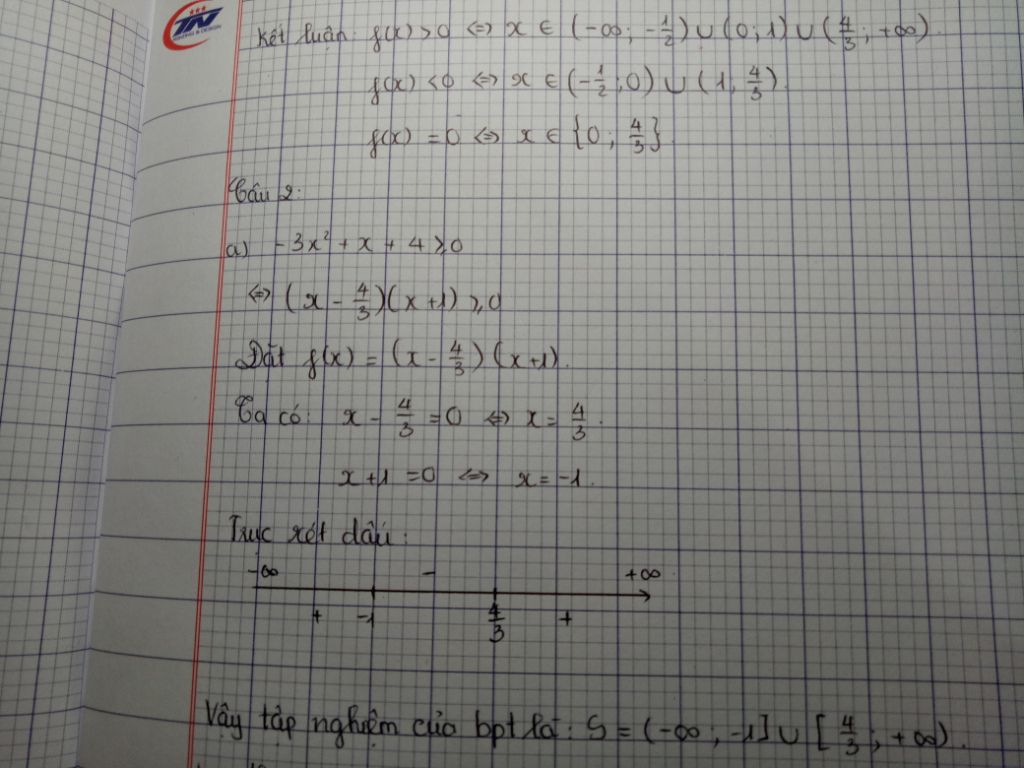 TN
Kết luận: f(x) > 0 ⇔ x ∈ (-∞; -1/2) ∪ (0; 1) ∪ (4/3; +∞).
f(x) < 0 ⇔ x ∈ (-1/2; 0) ∪ (1; 4/3).
f(x) = 0 ⇔ x ∈ {0; 4/3}.
Câu 2:
a) -3x² + x + 4 ≥ 0
⇔ (x - 4/3)(x+1) ≥ 0
Đặt f(x) = (x - 4/3)(x+1).
Ta có: x - 4/3 = 0 ⇔ x = 4/3.
x+1 = 0 ⇔ x = -1.
Trục xét dấu:
-∞ - +∞
+ -1 4/3 +
Vậy tập nghiệm của bpt là: S = (-∞; -1] ∪ [4/3; +∞).